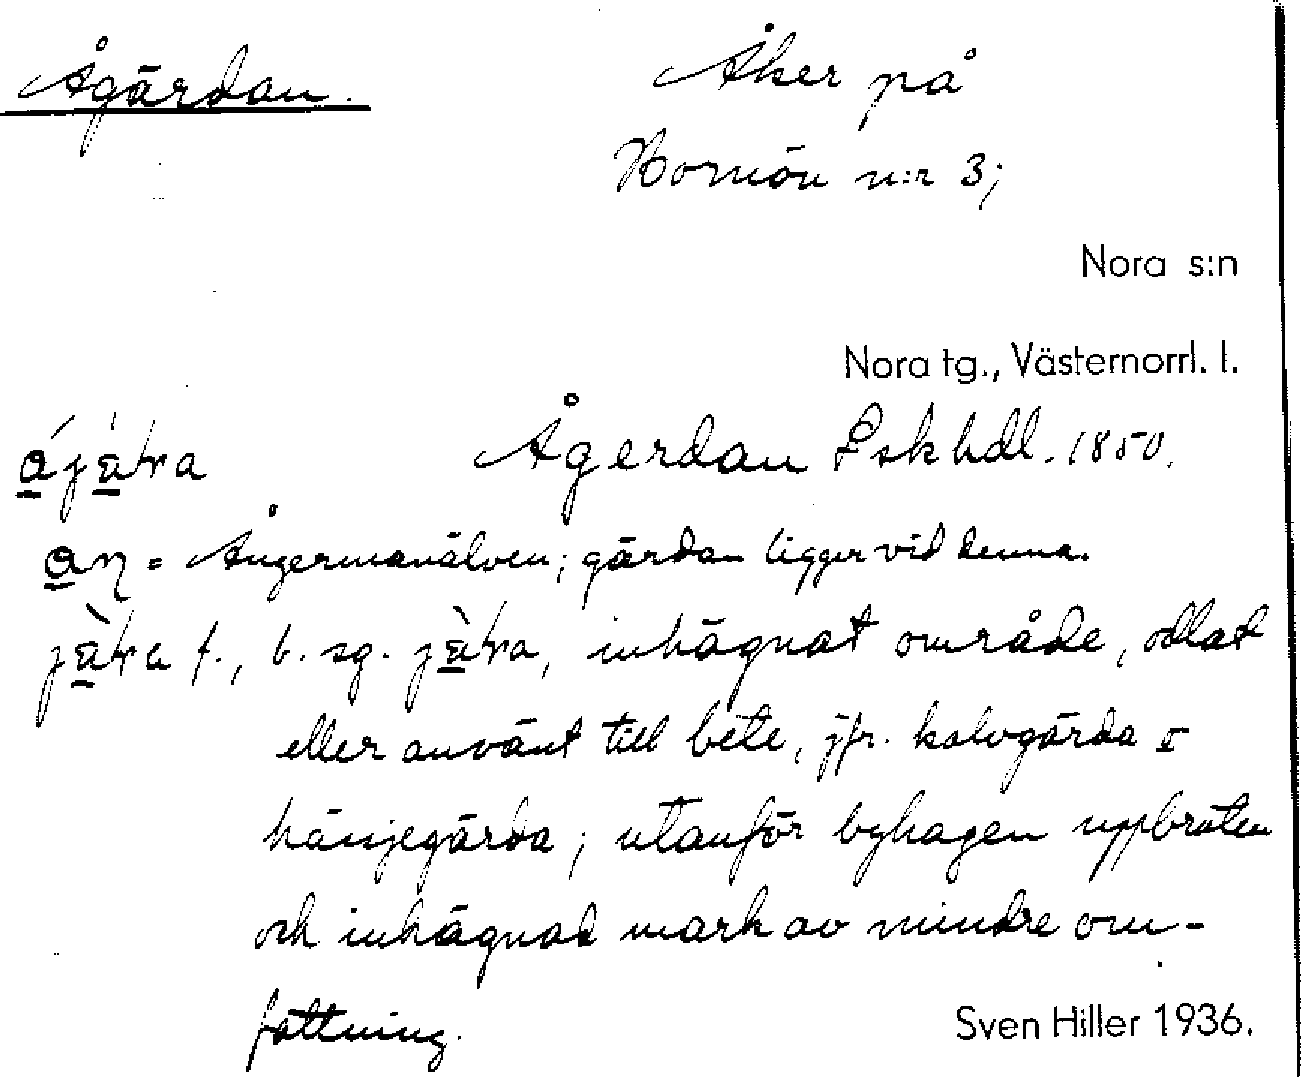 Ågärdan.
Åker på
Hornön n:r 3;
Nora s:n
Nora tg., Västernorrl. l.
Ågerdan Lskhdl. 1850.
= Ångermanälven; gärdan ligger vid denna.
f., b. sg. inhägnat område, odlat
eller använt till bete, jfr. kalvgärda o
hänjegärda; utanför byhagen uppbruten
och inhägnad mark av mindre om-
fattning.
Sven Hiller 1936.